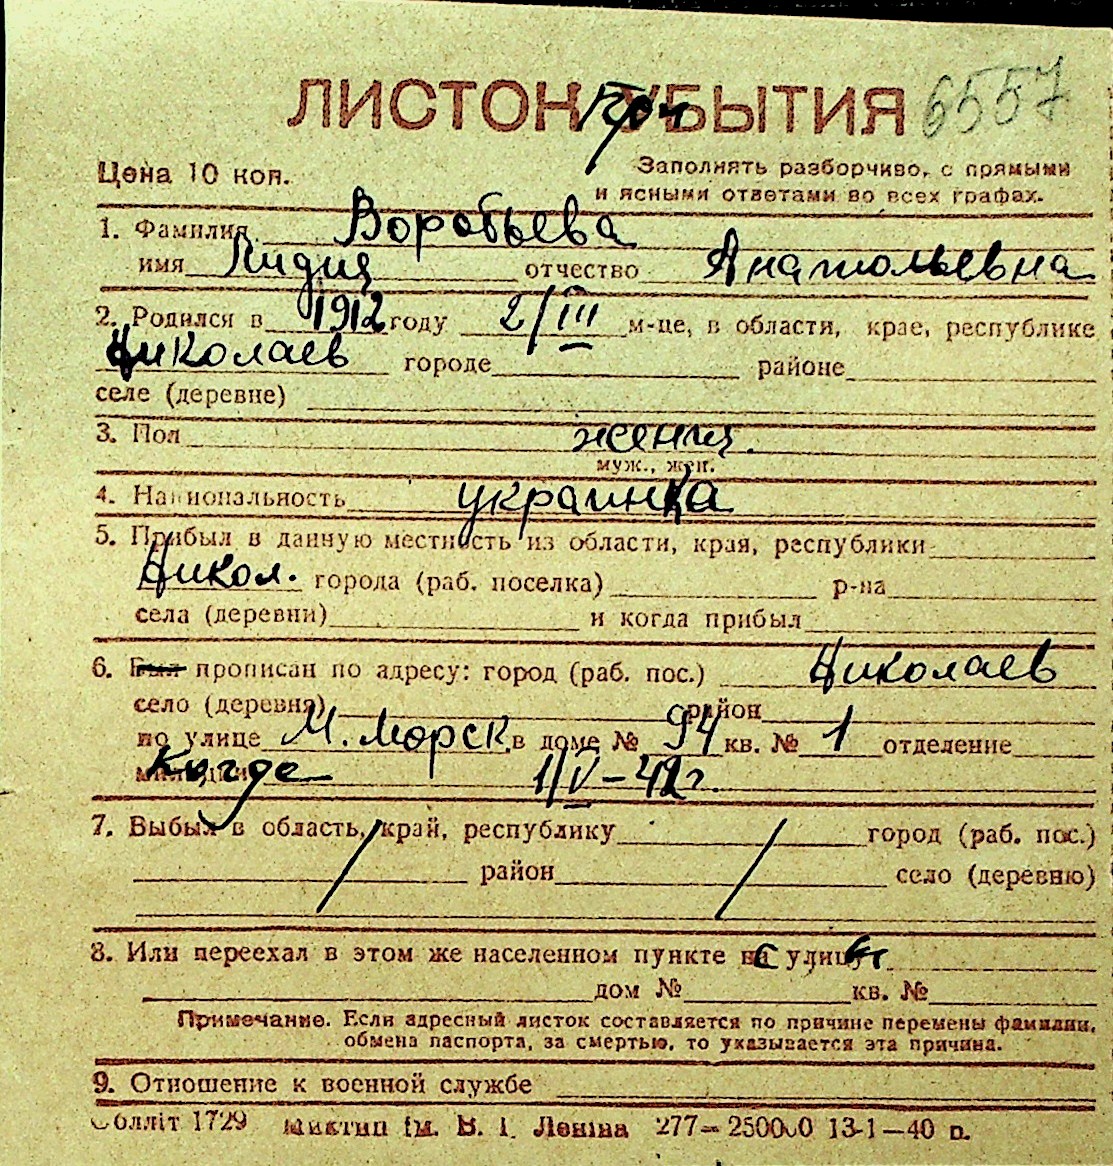 ЛИСТОК УБЫТИЯ 6557
Цена 10 коп. Заполнять разборчиво, с прямыми
и ясными ответами во всех графах.
1. Фамилия Воробьева
имя Лидия отчество Анатольевна
2. Родился в 1912 году 2/III м-це, в области, крае, республике
Николаев городе районе
селе (деревне)
3. Пол женщ.
муж., жен.
4. Национальность украинка
5. Прибыл в данную местность из области, края, республики
Никол. города (раб. поселка) р-на
села (деревни) и когда прибыл
6. Был прописан по адресу: город (раб. пос.) Николаев
село (деревня) район
по улице М. Морск. в доме № 94 кв. № 1 отделение
милиции Когда 1/V-42г.
7. Выбыл в область, край, республику город (раб. пос.)
район село (деревню)
8. Или переехал в этом же населенном пункте на улицу
дом № кв. №
Примечание. Если адресный листок составляется по причине перемены фамилии,
обмена паспорта, за смертью, то указывается эта причина.
9. Отношение к военной службе
Облліт 1729 Миктип ім. В. І. Леніна 277—250000 13-1—40 р.